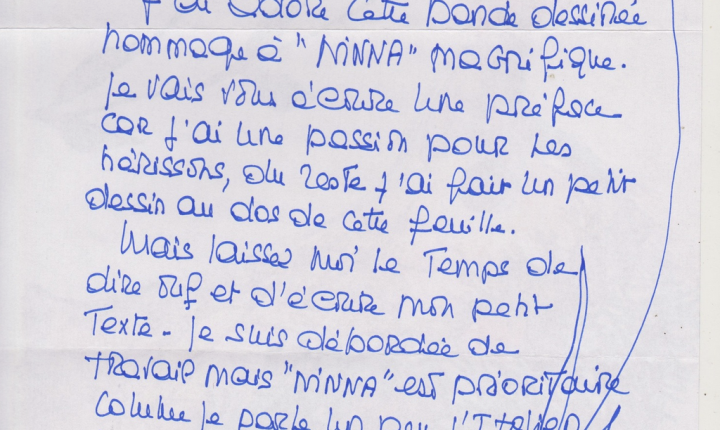 J'ai adoré cette bande dessinée
hommage à "NINNA" magnifique.
Je vais vous écrire une préface
car j'ai une passion pour les
hérissons, du reste j'ai fait un petit
dessin au dos de cette feuille.
Mais laissez moi le temps de
dire ouf et d'écrire mon petit
texte - je suis débordée de
travail mais "NINNA" est prioritaire
comme je parle un peu l'Italien